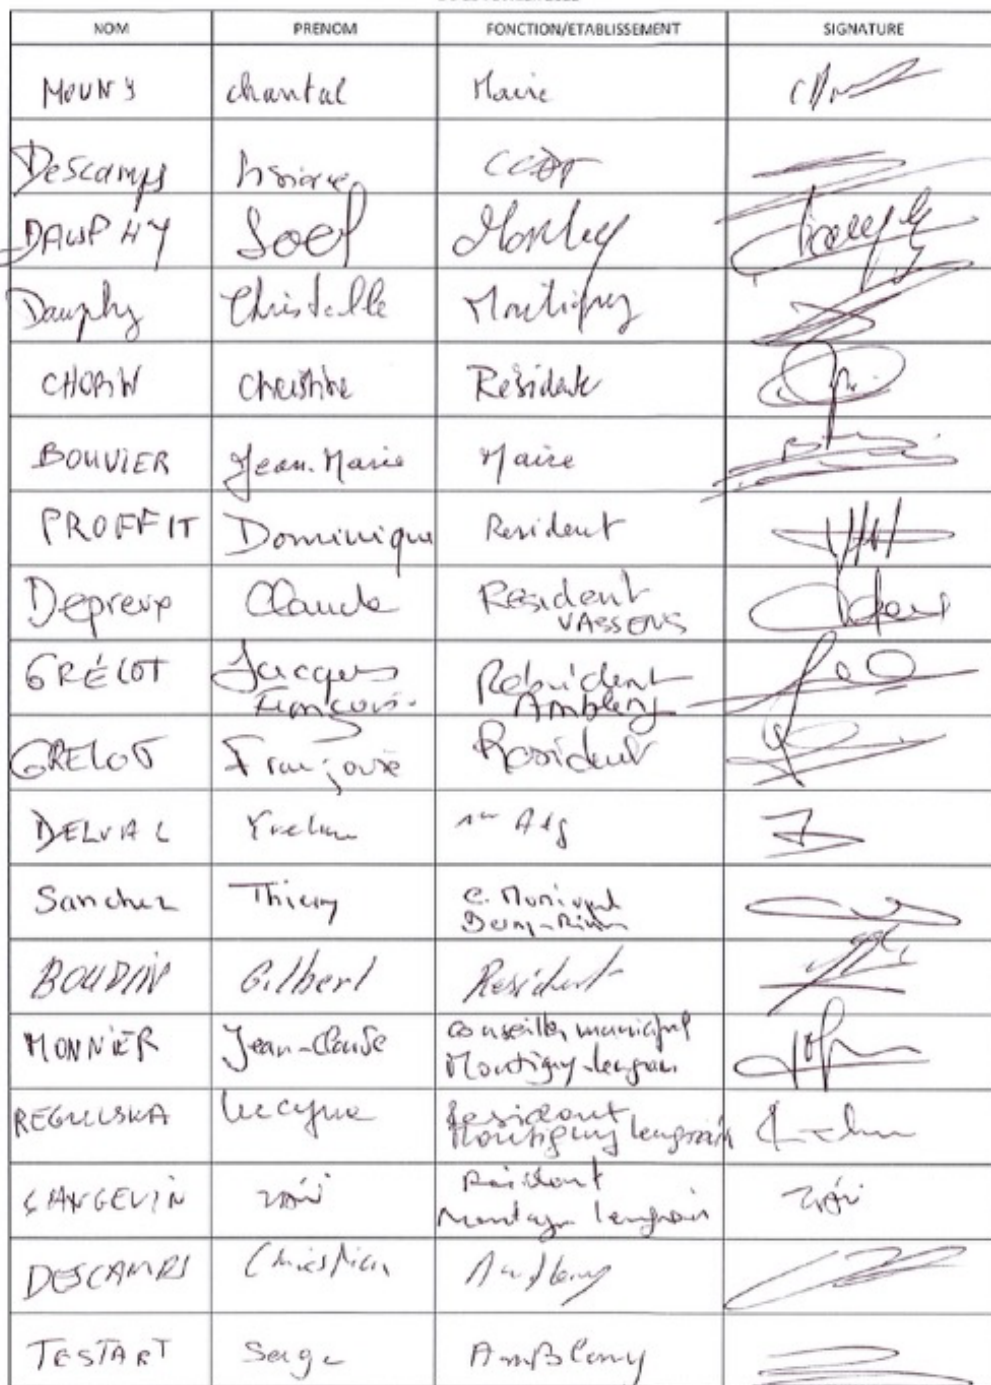 NOM PRENOM FONCTION/ETABLISSEMENT SIGNATURE
MOUNY chantal Maire
Descamps CCRT
DAUPHY Joel
Dauphy Christelle Montigny
CHOPIN Christine Résidente
BOUVIER Jean-Marie Maire
PROFFIT Dominique Resident
Depreux Claude Resident
VASSENS
GRÉLOT Jacques Résident
François Ambleny
GRELOT Françoise Resident
DELVAL Yveline
Sanchez Thierry C. Municipal
BOUDIN Gilbert Resident
MONNIER Jean-Claude conseiller municipal
Montigny-lengrain
REGULSKA lucyna Resident
Montigny lengrain
LANGEVIN Résident
Montigny lengrain
DESCAMPS Christian Ambleny
TESTART Serge Ambleny